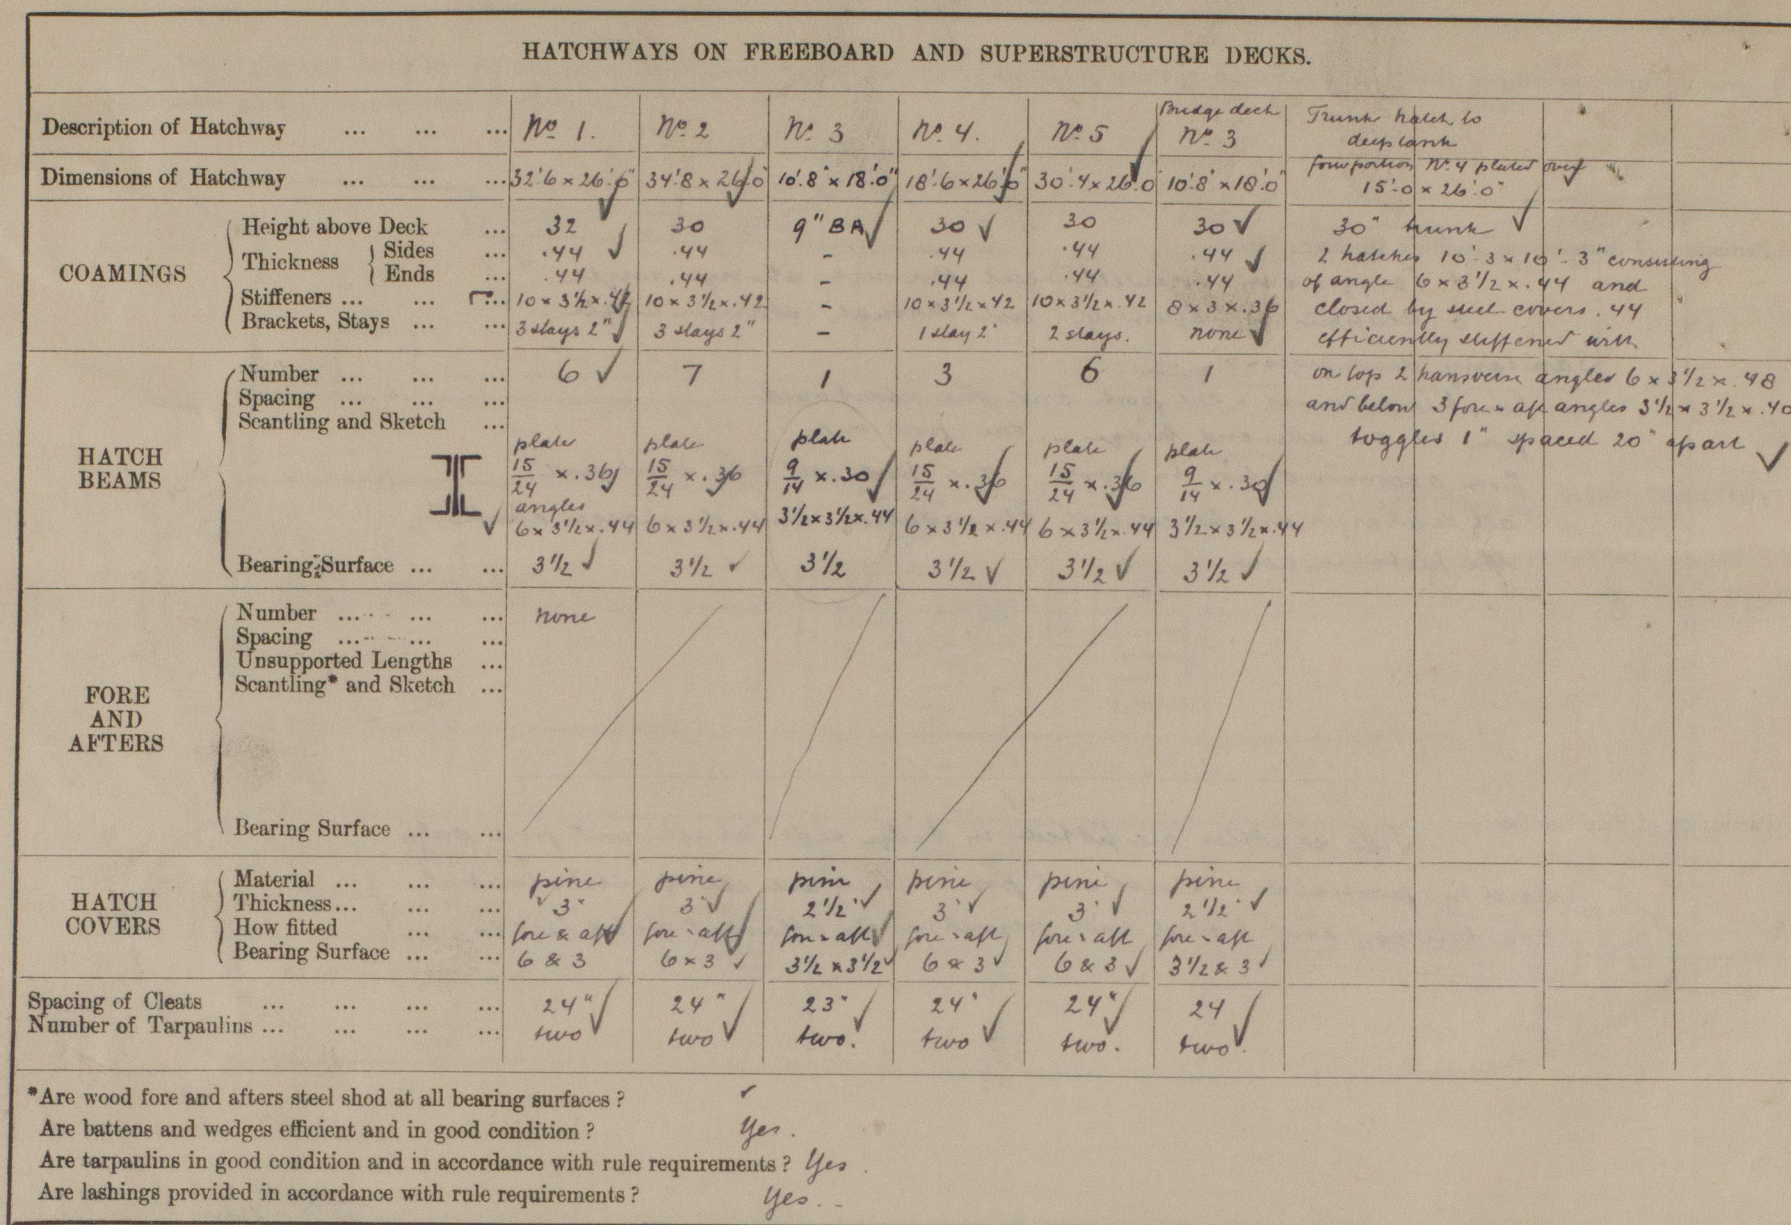 HATCHWAYS ON FREEBOARD AND SUPERSTRUCTURE DECKS.
Description of Hatchway ... ... ... No 1. No 2 No 3 No 4. No 5 Bridge deck No 3 Trunk hatch to deeptank
Dimensions of Hatchway ... ... ... 32'.6 x 26'.0" 34'.8 x 26'.0" 10'.8" x 18'.0" 18'.6 x 26'.0" 30'.4 x 26'.0 10'.8" x 18'.0" forw portion No 4 plated over 15'.0 x 26'.0"
COAMINGS
Height above Deck ... 32 30 9" BA 30 30 30 30" trunk
Thickness Sides ... .44 .44 - .44 .44 .44 2 hatches 10'.3 x 10'.3" consisting
Ends ... .44 .44 - .44 .44 .44 of angle 6 x 3 1/2 x .44 and
Stiffeners ... ... ... 10 x 3 1/2 x .42 10 x 3 1/2 x .42 - 10 x 3 1/2 x 42 10 x 3 1/2 x .42 8 x 3 x .36 closed by steel covers .44
Brackets, Stays ... ... 3 stays 2" 3 stays 2" - 1 stay 2" 2 stays. none efficiently stiffened with
HATCH BEAMS
Number ... ... ... 6 7 1 3 6 1 on top 2 transverse angles 6 x 3 1/2 x .48
Spacing ... ... ... and below 3 fore & aft angles 3 1/2 x 3 1/2 x .40
Scantling and Sketch ... toggles 1" spaced 20" apart
plate plate plate plate plate plate
15/24 x .36 15/24 x .36 9/14 x .30 15/24 x .36 15/24 x .36 9/14 x .30
angles
6 x 3 1/2 x .44 6 x 3 1/2 x .44 3 1/2 x 3 1/2 x .44 6 x 3 1/2 x .44 6 x 3 1/2 x .44 3 1/2 x 3 1/2 x .44
Bearing Surface ... ... 3 1/2 3 1/2 3 1/2 3 1/2 3 1/2 3 1/2
FORE AND AFTERS
Number ... ... ... none
Spacing ... ... ...
Unsupported Lengths ...
Scantling* and Sketch ...
Bearing Surface ... ...
HATCH COVERS
Material ... ... ... pine pine pine pine pine pine
Thickness... ... ... 3" 3" 2 1/2" 3" 3" 2 1/2"
How fitted ... ... fore & aft fore & aft fore & aft fore & aft fore & aft fore & aft
Bearing Surface ... ... 6 & 3 6 x 3 3 1/2 x 3 1/2 6 & 3 6 & 3 3 1/2 & 3
Spacing of Cleats ... ... ... ... 24" 24" 23" 24" 24" 24
Number of Tarpaulins ... ... ... ... two two two. two two. two.
*Are wood fore and afters steel shod at all bearing surfaces ? ✓
Are battens and wedges efficient and in good condition ? Yes.
Are tarpaulins in good condition and in accordance with rule requirements ? Yes.
Are lashings provided in accordance with rule requirements ? Yes.